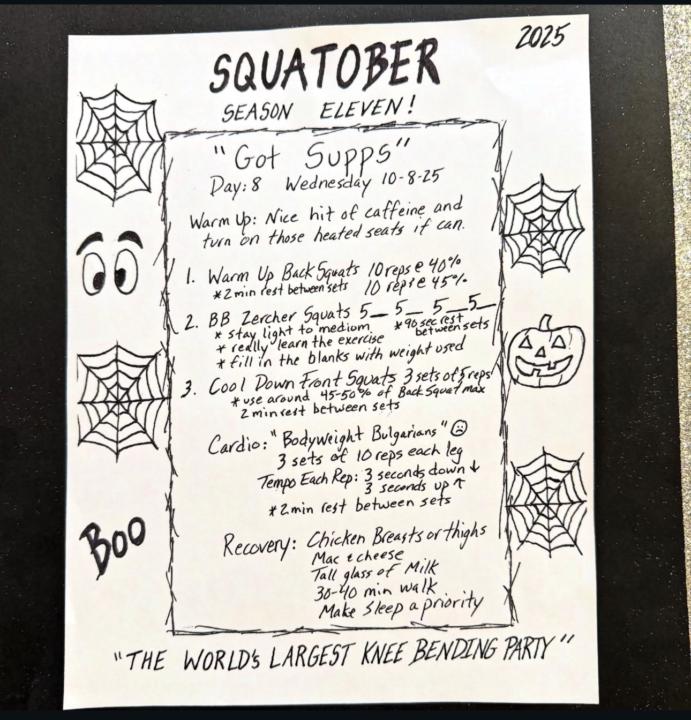 2025
SQUATOBER
SEASON ELEVEN!
"Got Supps"
Day:8 Wednesday 10-8-25
Warm Up: Nice hit of caffeine and
turn on those heated seats if can.
1. Warm Up Back Squats 10 reps @ 40%
*2 min rest between sets 10 reps @ 45%
2. BB Zercher Squats 5_ 5_ 5_ 5_
* stay light to medium *90 sec rest
between sets
* really learn the exercise
* fill in the blanks with weight used
3. Cool Down Front Squats 3 sets of 5 reps
*use around 45-50% of Back Squat max
2 min rest between sets
Cardio: "Bodyweight Bulgarians" ☹
3 sets of 10 reps each leg
Tempo Each Rep: 3 seconds down ↓
3 seconds up ↑
*2 min rest between sets
Recovery: Chicken Breasts or thighs
Mac & cheese
Tall glass of Milk
30-40 min walk
Make Sleep a priority
BOO
"THE WORLD's LARGEST KNEE BENDING PARTY"